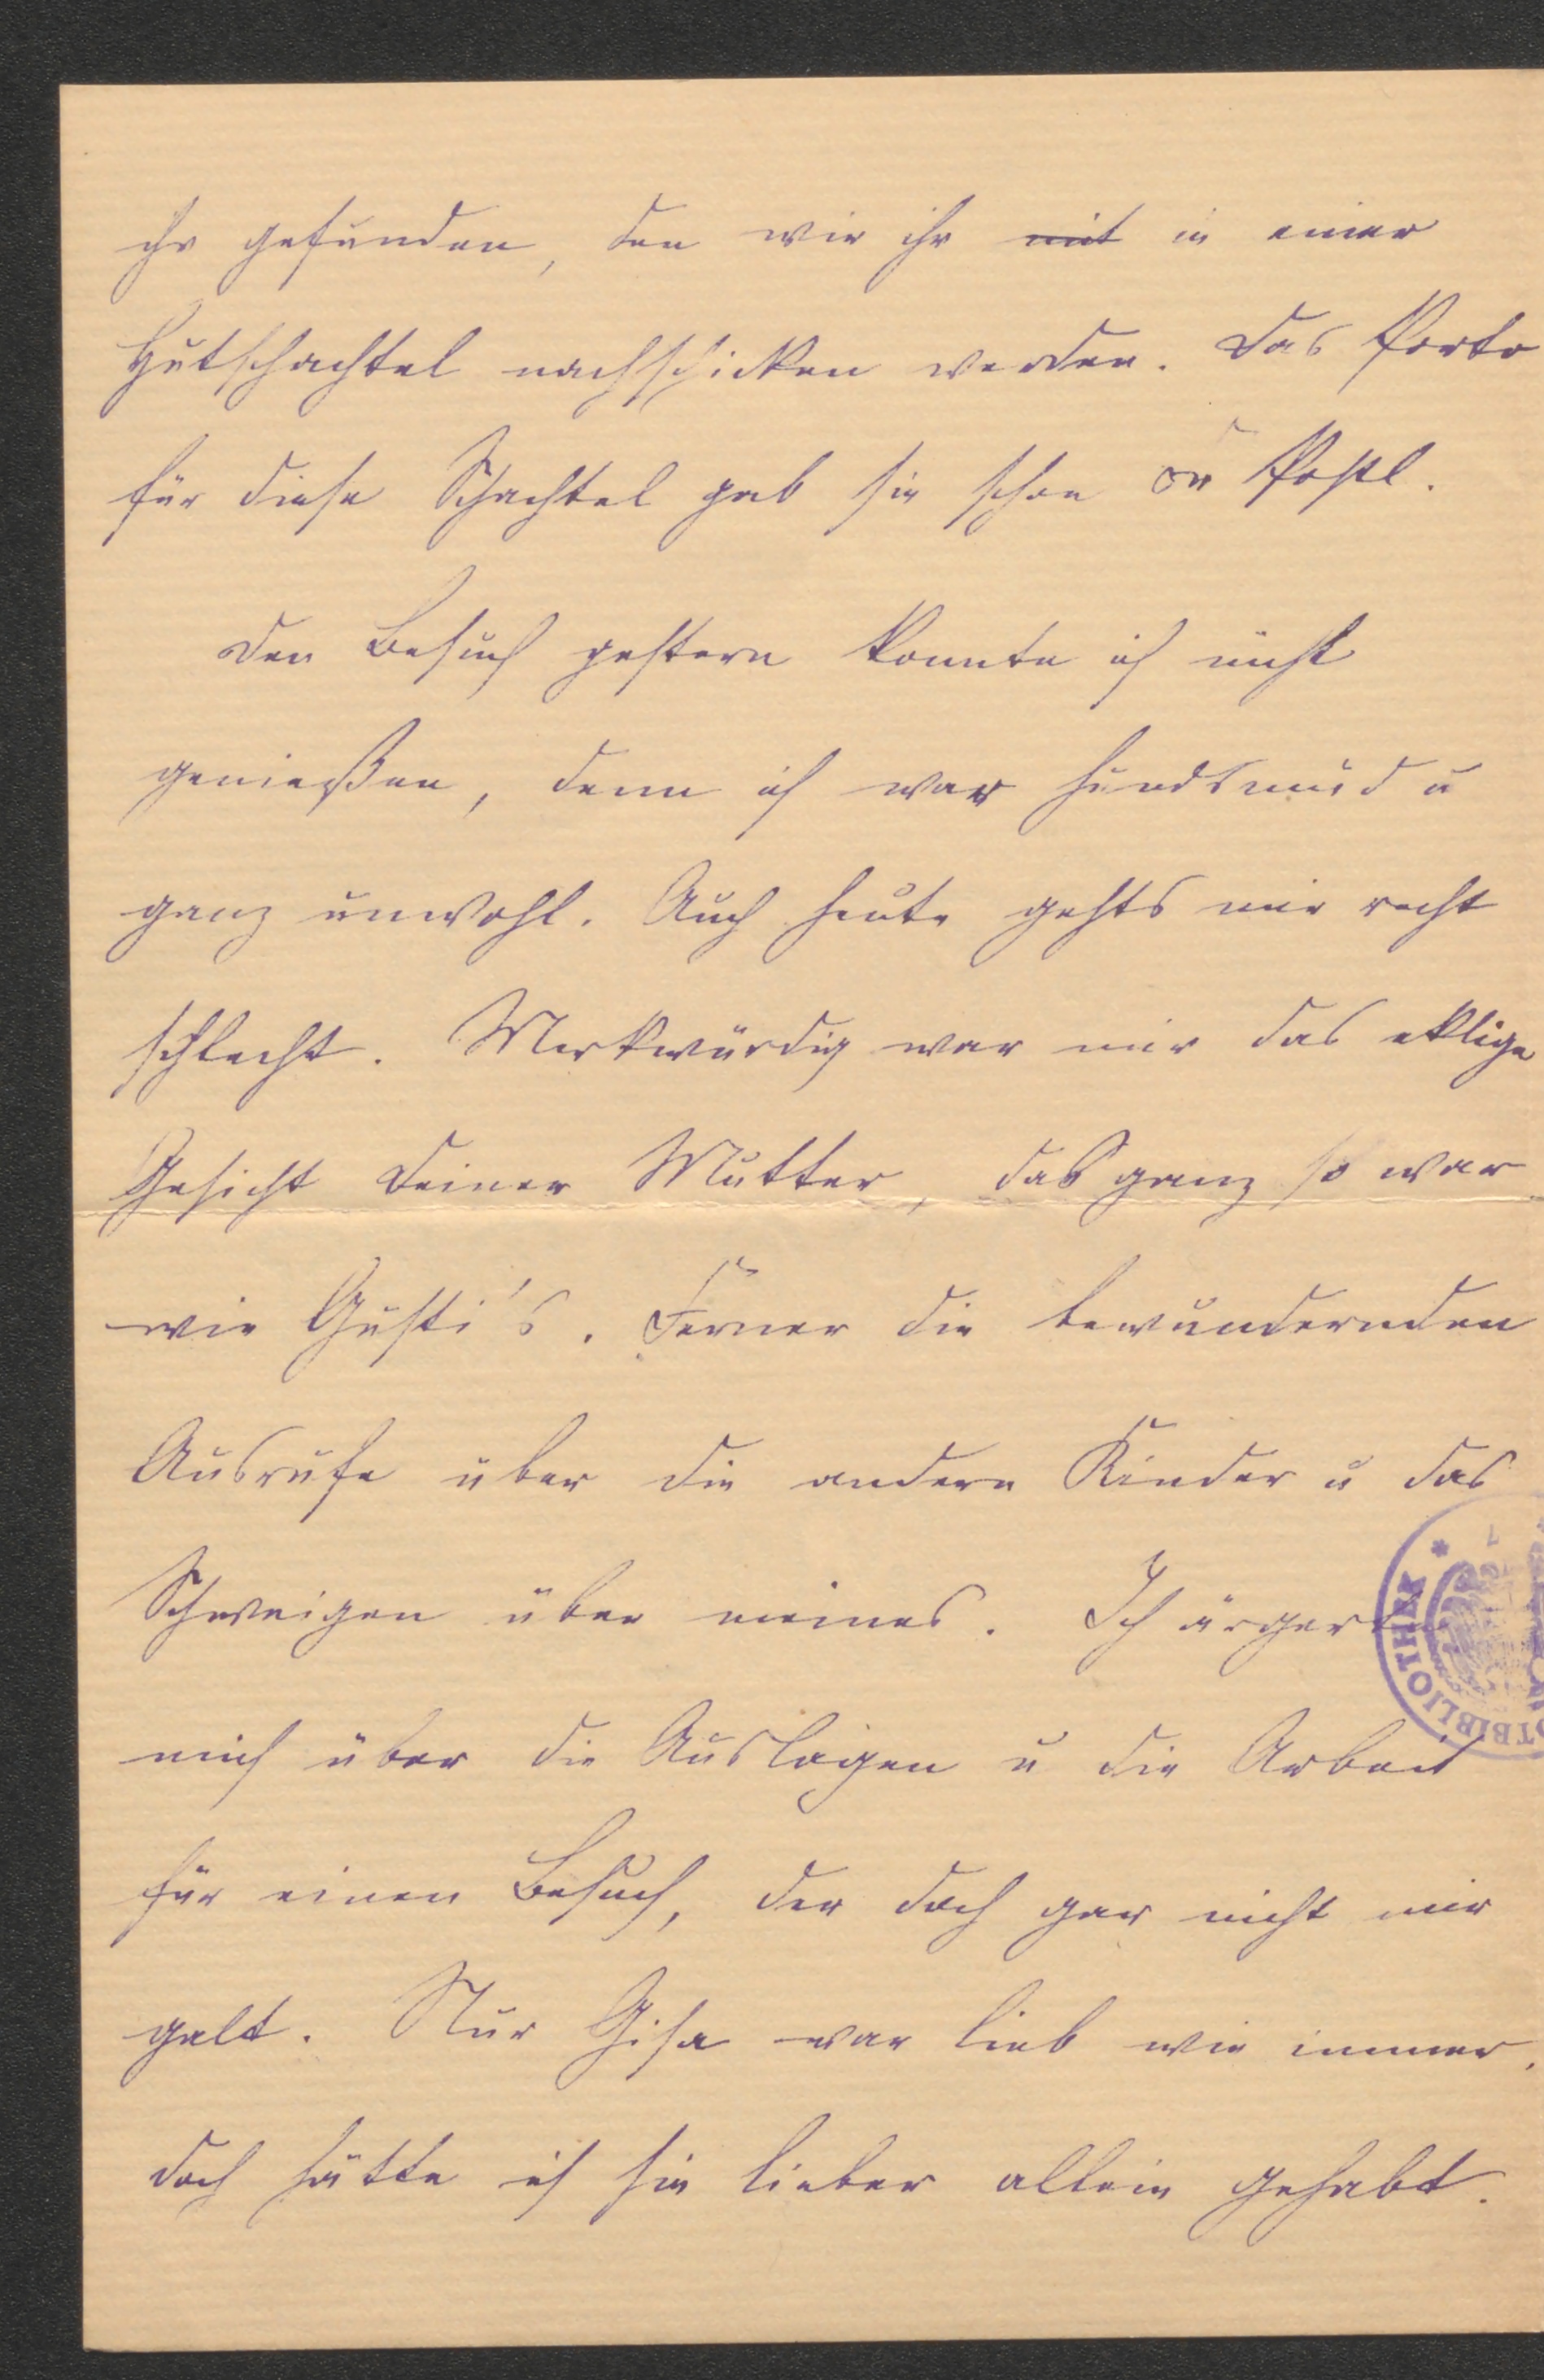 ihr gefunden, den wir ihr mit in einer
Hutschachtel nachschicken werden. Das Porto
für diese Schachtel gab sie schon
Den Besuch gestern konnte ich nicht
genießen, denn ich war hundsmüd u
ganz unwohl. Auch heute gehts mir recht
schlecht. Merkwürdig war mir das eklige
Gesicht Deiner Mutter, das ganz so war
wie Gusti's. Ferner die bewundernden
Ausrufe über die andern Kinder u das
Schweigen über meines. Ich ärgerte
mich über die Auslagen u die Arbeit
für einen Besuch, der doch gar nicht mir
galt. Nur Gisa war lieb wie immer,
doch hätte ich sie lieber allein gehabt.